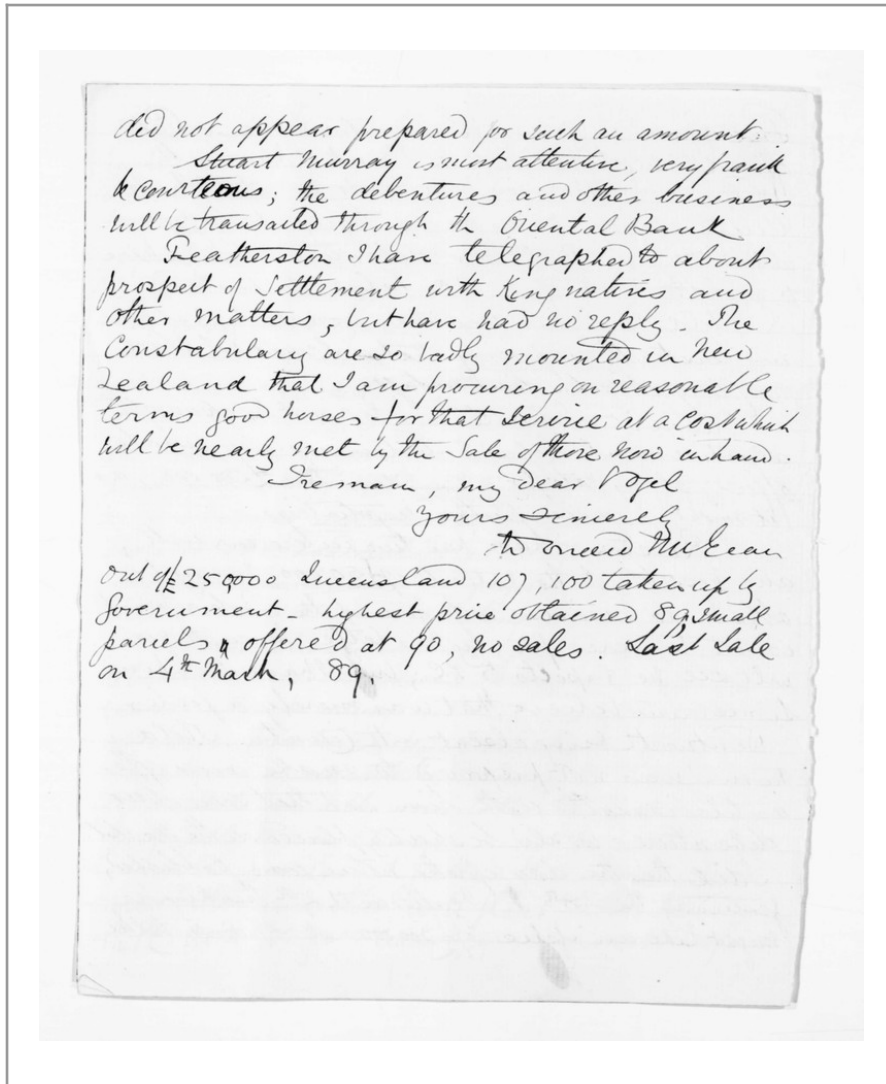 did not appear prepared for such an amount.
Stuart Murray is most attentive, very frank
& courteous; the debentures and other business
will be transacted through the Oriental Bank
Featherston I have telegraphed to about
prospect of Settlement with King natives and
other matters, but have had no reply. The
Constabulary are so badly mounted in New
Zealand that I am procuring on reasonable
terms good horses for that service at a cost which
will be nearly met by the Sale of those now in hand.
I remain, my dear Vogel
Yours Sincerely
Donald McLean
out of £250,000 Queensland 107,100 taken up by
Government - highest price obtained 89, small
parcels offered at 90, no sales. Last Sale
on 4th March, 89.